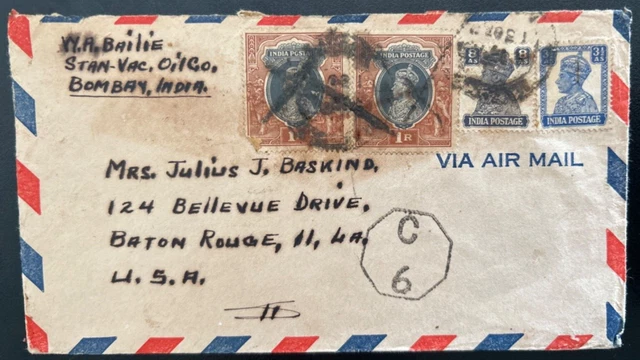 W.A. Bailie
Stan-Vac. Oil Co.
Bombay, India.
INDIA POSTAGE
1R
INDIA POSTAGE
1R
8 AS
8 AS
INDIA POSTAGE
3½ AS
INDIA POSTAGE
VIA AIR MAIL
Mrs. Julius J. Baskind,
124 Bellevue Drive,
Baton Rouge, 11, La.
U.S.A.
C
6